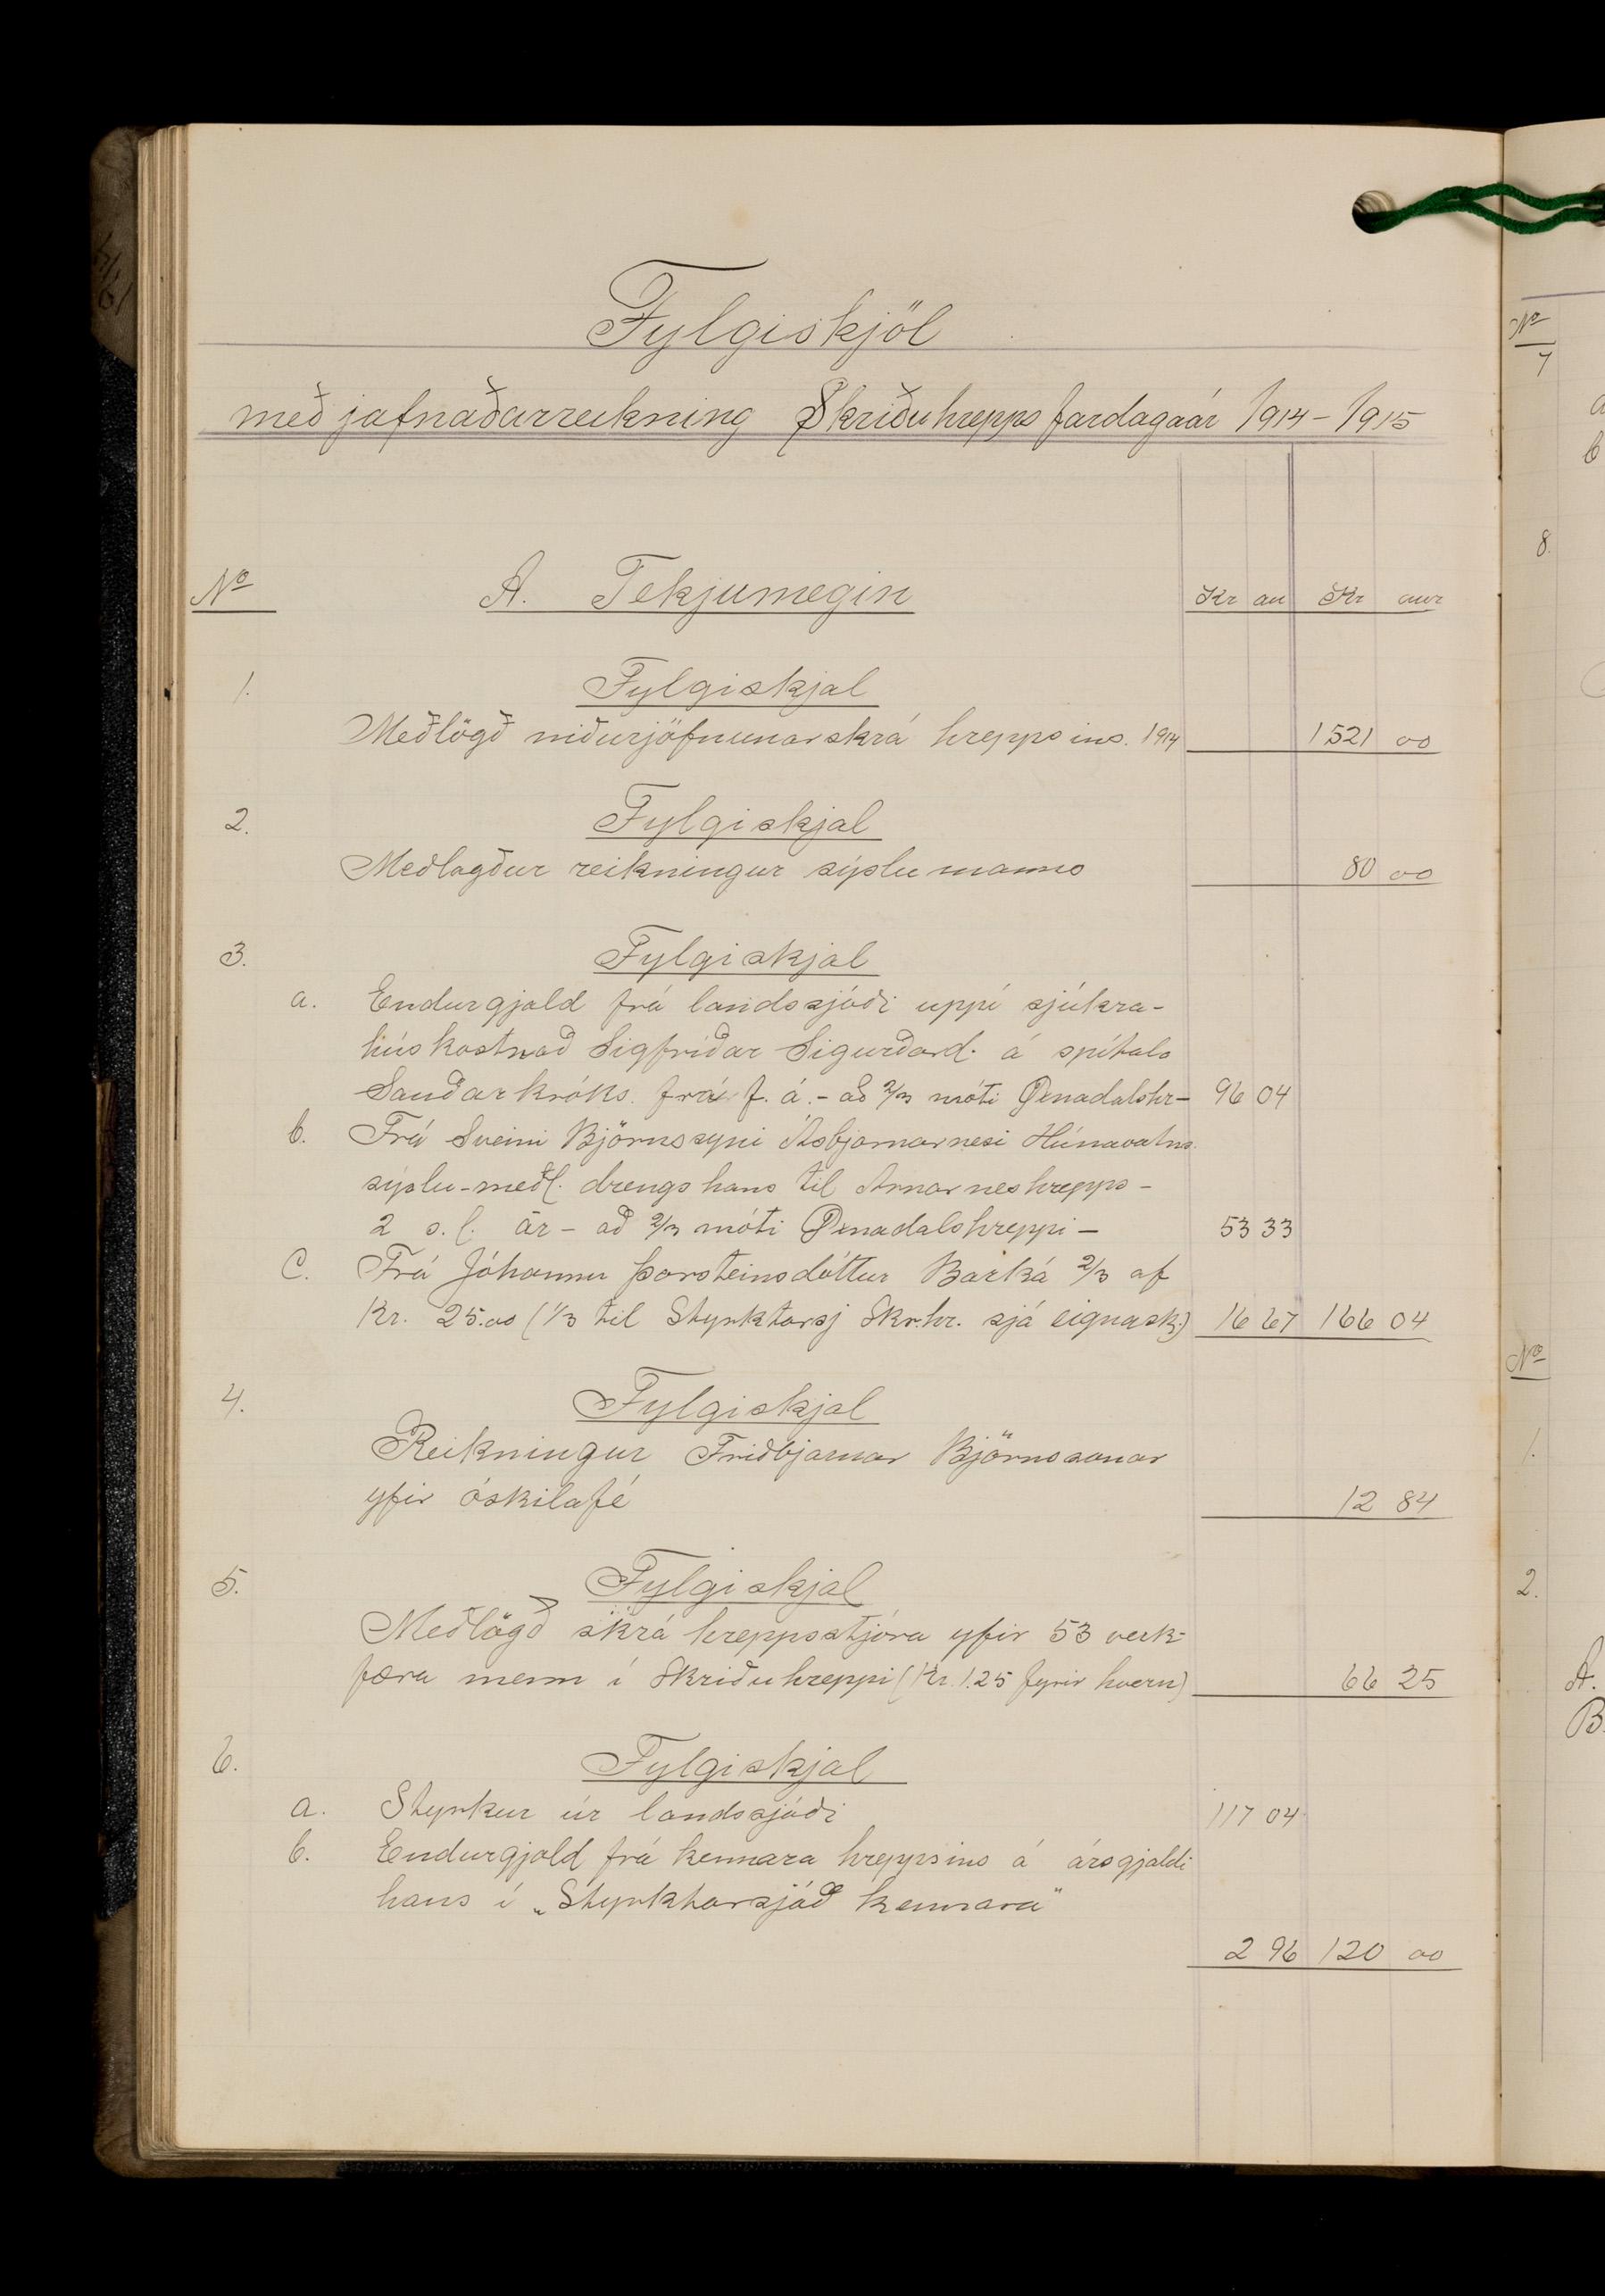 Fylgiskjöl
með jafnaðarreikning Skriðuhrepps fardagaár 1914-1915
No A. Tekjumegin Kr au Kr aur
1. Fylgiskjal
Meðlögð niðurjöfnunarskrá hreppsins. 1914 1521 00
2. Fylgiskjal
Meðlagður reikningur sýslumanns 80 00
3. Fylgiskjal
a. Endurgjald frá landssjóði uppí sjúkra-
húskostnað Sigfríðar Sigurðard. á spítala
Sauðarkróks. frá f. á. - að 2/3 móti Öxnadalshr- 96 04
b. Frá Sveini Björnssyni Ásbjarnarnesi Húnavatns
sýslu-meðl. drengs hans til Arnarneshrepps -
2 s.l. ár - að 2/3 móti Öxnadalshreppi - 53 33
C. Frá Jóhönnu Þorsteinsdóttur Barká 2/3 af
Kr. 25.00 (1/3 til Styrktarsj Skr.hr. sjá eignask.) 16 67 166 04
4. Fylgiskjal
Reikningur Friðbjarnar Björnssonar
yfir óskilafé 12 84
5. Fylgiskjal
Meðlögð skrá hreppstjóra yfir 53 verk-
færa menn í Skriðuhreppi (Kr. 1.25 fyrir hvern) 66 25
6. Fylgiskjal
a. Styrkur úr landssjóði 117 04
b. Endurgjald frá kennara hreppsins á ársgjaldi
hans í „Styrktarsjóð kennara"
2 96 120 00
No
7
b
8.
No
1.
2.
A.
B.